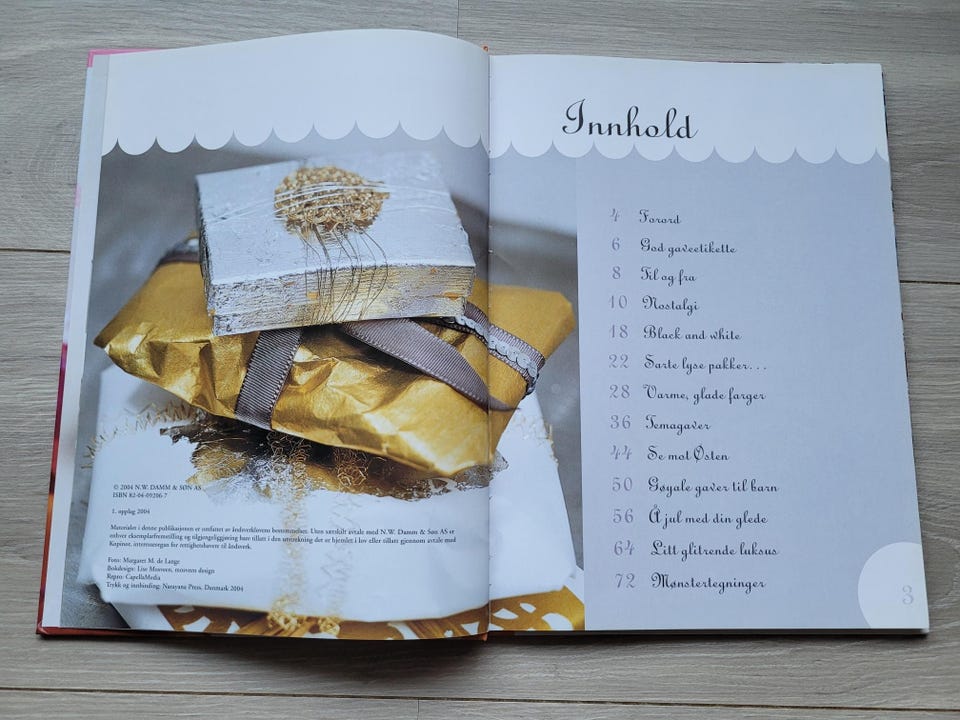 © 2004 N.W. DAMM & SØN AS
ISBN 82-04-09206-7
1. opplag 2004
Materialet i denne publikasjonen er omfattet av åndsverklovens bestemmelser. Uten særskilt avtale med N.W. Damm & Søn AS er
enhver eksemplarfremstilling og tilgjengeliggjøring bare tillatt i den utstrekning det er hjemlet i lov eller tillatt gjennom avtale med
Kopinor, interesseorgan for rettighetshavere til åndsverk.
Foto: Margaret M. de Lange
Bokdesign: Lise Mosveen, mosveen design
Repro: CapellaMedia
Trykk og innbinding: Narayana Press, Danmark 2004
Innhold
4 Forord
6 God gaveetikette
8 Til og fra
10 Nostalgi
18 Black and white
22 Sarte lyse pakker...
28 Varme, glade farger
36 Temagaver
44 Se mot Østen
50 Gøyale gaver til barn
56 Å jul med din glede
64 Litt glitrende luksus
72 Mønstertegninger
3